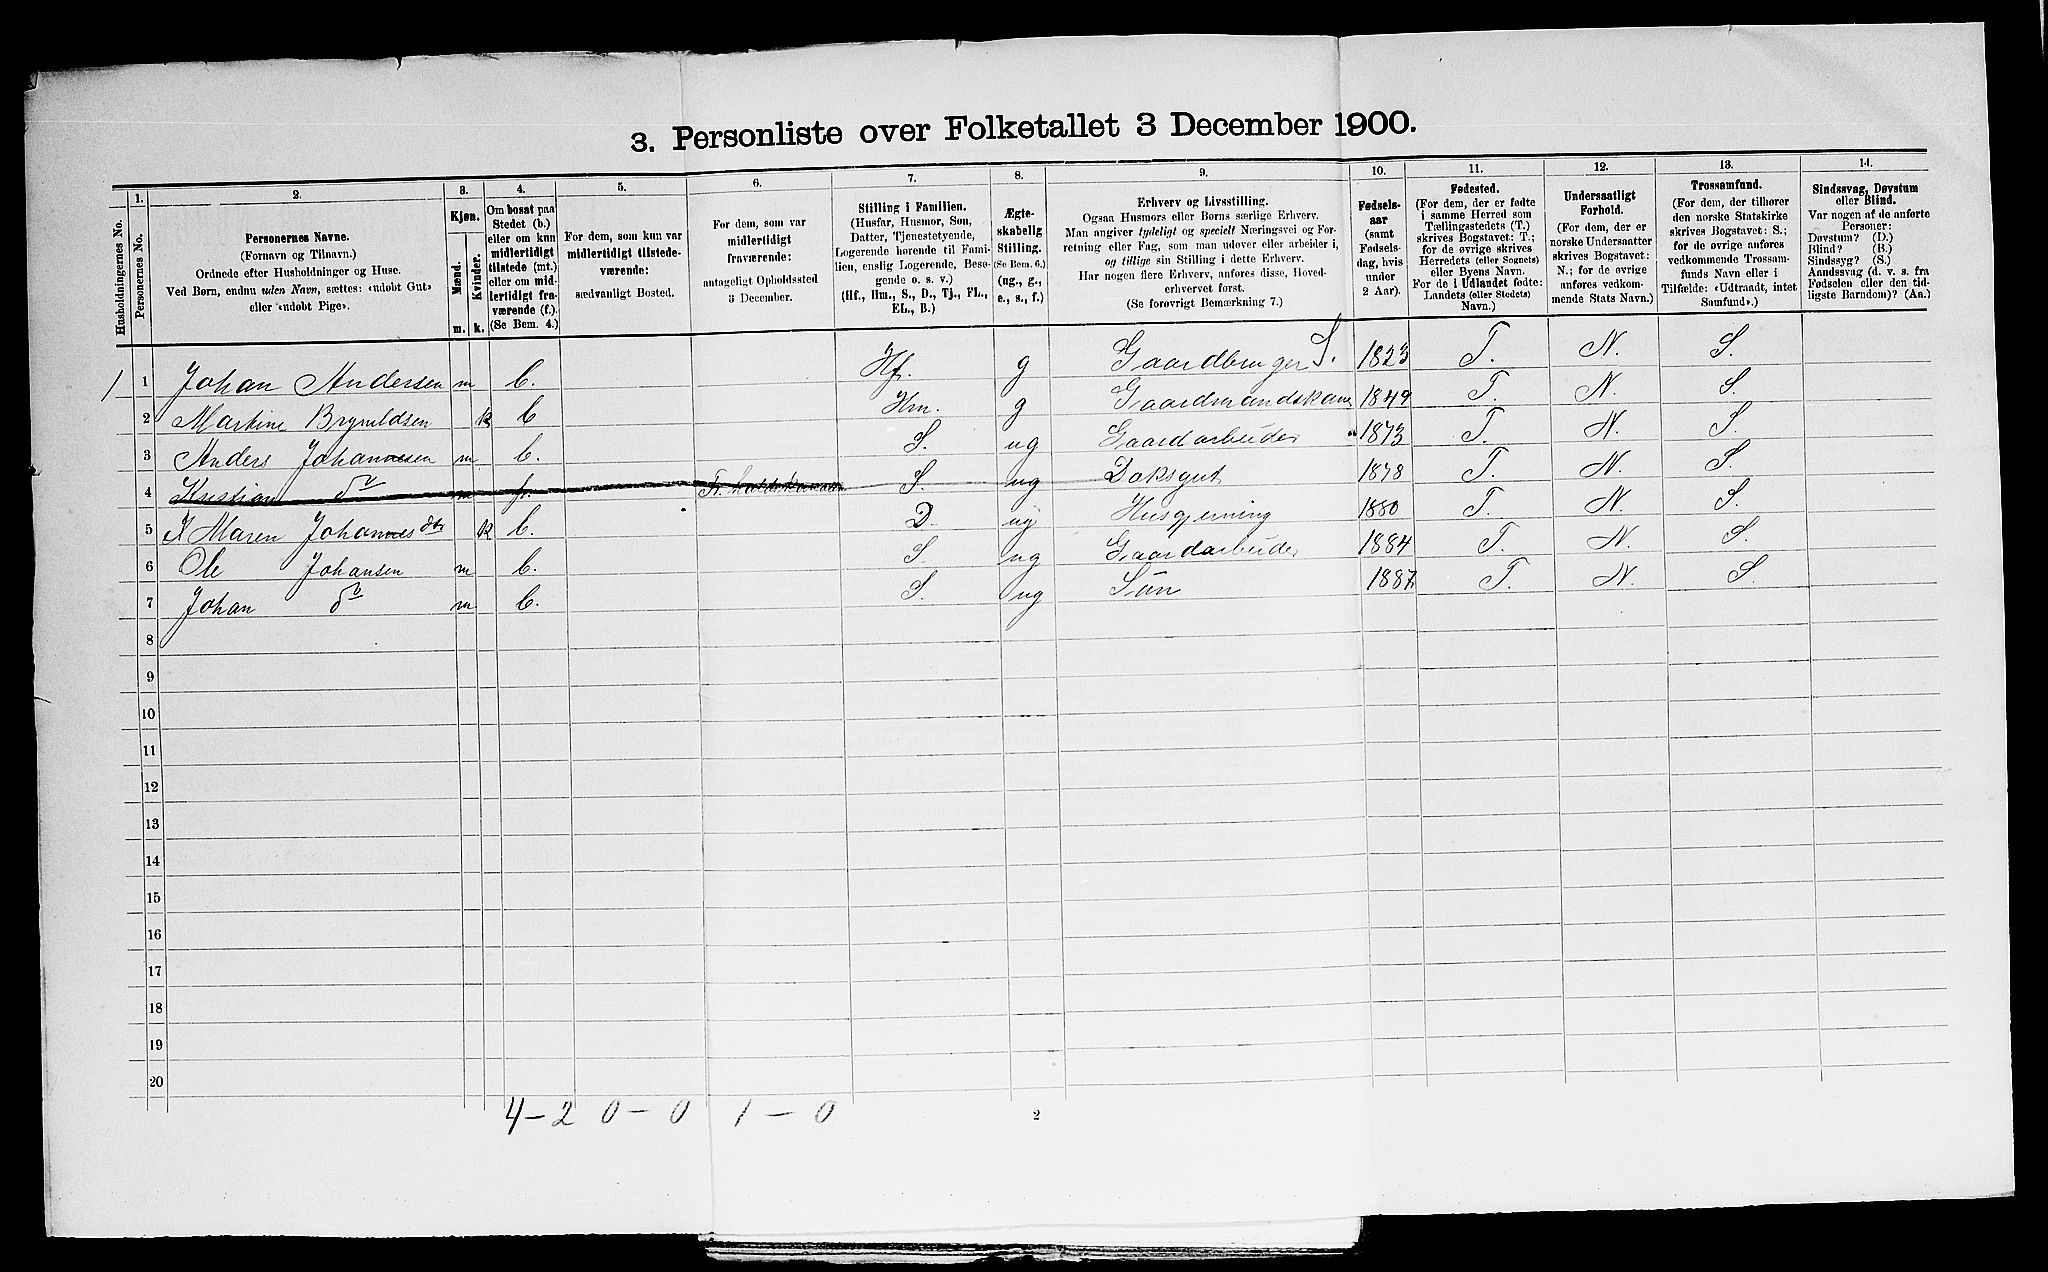 3. Personliste over Folketallet 3 December 1900.
Husholdningernes No.
1.
Personernes No.
2.
Personernes Navne.
(Fornavn og Tilnavn.)
Ordnede efter Husholdninger og Huse.
Ved Børn, endnu uden Navn, sættes: «udøbt Gut»
eller «udøbt Pige».
3.
Kjøn.
Mænd.
Kvinder.
m.
k.
4.
Om bosat paa
Stedet (b.)
eller om kun
midlertidigt
tilstede (mt.)
eller om mid-
lertidigt fra-
værende (f.).
(Se Bem. 4.)
5.
For dem, som kun var
midlertidigt tilstede-
værende:
sædvanligt Bosted.
6.
For dem, som var
midlertidigt
fraværende:
antageligt Opholdssted
3 December.
7.
Stilling i Familien.
(Husfar, Husmor, Søn,
Datter, Tjenestetyende,
Logerende hørende til Fami-
lien, enslig Logerende, Besø-
gende o. s. v.)
(Hf., Hm., S., D., Tj., FL.,
EL., B.)
8.
Ægte-
skabelig
Stilling.
(Se Bem. 6.)
(ug., g.,
e., s., f.)
9.
Erhverv og Livsstilling.
Ogsaa Husmors eller Børns særlige Erhverv.
Man angiver tydeligt og specielt Næringsvei og For-
retning eller Fag, som man udover eller arbeider i,
og tillige sin Stilling i dette Erhverv.
Har nogen flere Erhverv, anføres disse, Hoved-
erhvervet først.
(Se forøvrigt Bemærkning 7.)
10.
Fødsels-
aar
(samt
Fødsels-
dag, hvis
under
2 Aar).
11.
Fødested.
(For dem, der er fødte
i samme Herred som
Tællingsstedets (T.)
skrives Bogstavet: T.;
for de øvrige skrives
Herredets (eller Sognets)
eller Byens Navn.
For de i Udlandet fødte:
Landets (eller Stedets)
Navn.)
12.
Undersaatligt
Forhold.
(For dem, der er
norske Undersaatter
skrives Bogstavet:
N.; for de øvrige
anføres vedkom-
mende Stats Navn.)
13.
Trossamfund.
(For dem, der tilhører
den norske Statskirke
skrives Bogstavet: S.;
for de øvrige anføres
vedkommende Trossam-
funds Navn eller i
Tilfælde: «Udtraadt, intet
Samfund».)
14.
Sindssvag, Døvstum
eller Blind.
Var nogen af de anførte
Personer:
Døvstum? (D.)
Blind? (B.)
Sindssyg? (S.)
Aandssvag (d. v. s. fra
Fødselen eller den tid-
ligste Barndom)? (Aa.)
1 1 Johan Andersen m b. Hf. g Gaardbruger S. 1823 T. N. S.
2 Martine Brynildsen k b Hm. g Gaardmandskone 1849 T. N. S.
3 Anders Johannesen m b. S. ug Gaardarbeider " 1873 T. N. S.
4 Kristian do m f. S. ug Doksgut 1878 T. N. S.
5 Maren Johannesdtr k b. D. ug Husgjerning 1880 T. N. S.
6 Ole Johansen m b. S. ug Gaardarbeider 1884 T. N. S.
7 Johan do m b. S. ug Søn 1887 T. N. S.
8
9
10
11
12
13
14
15
16
17
18
19
20
4 – 2 0 – 0 1 – 0
2